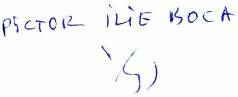 PICTOR ILIE BOCA